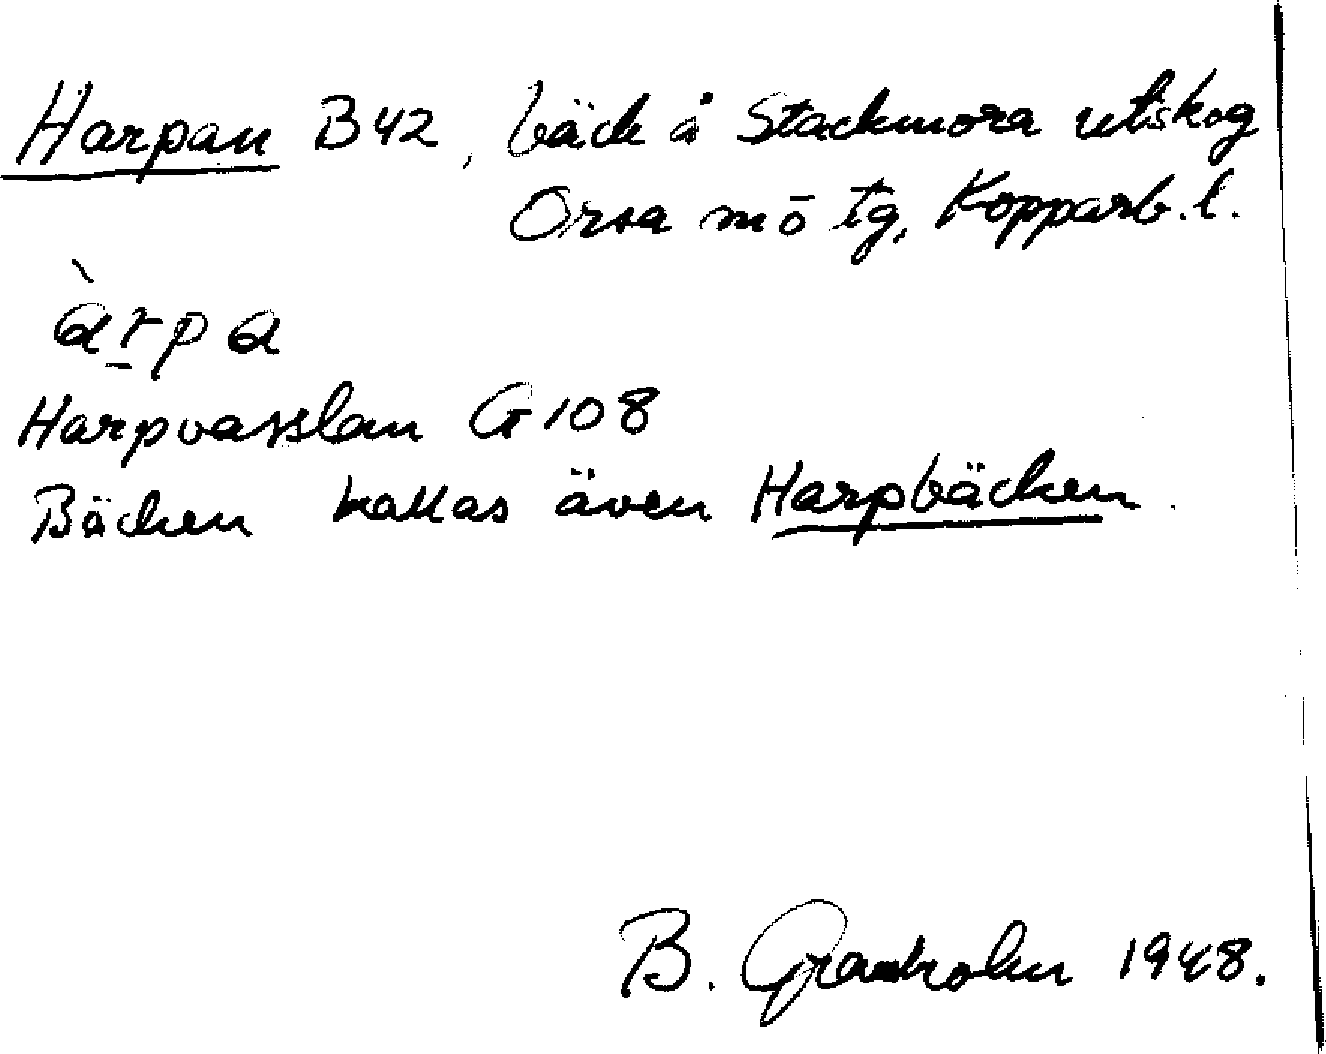 Harpan B42, bäck å Stackmora utskog
Orsa m ō tg, Kopparb. l.
àrpa
Harpvasslan G108
Bäcken kallas även Harpbäcken.
B. Granholm 1948.